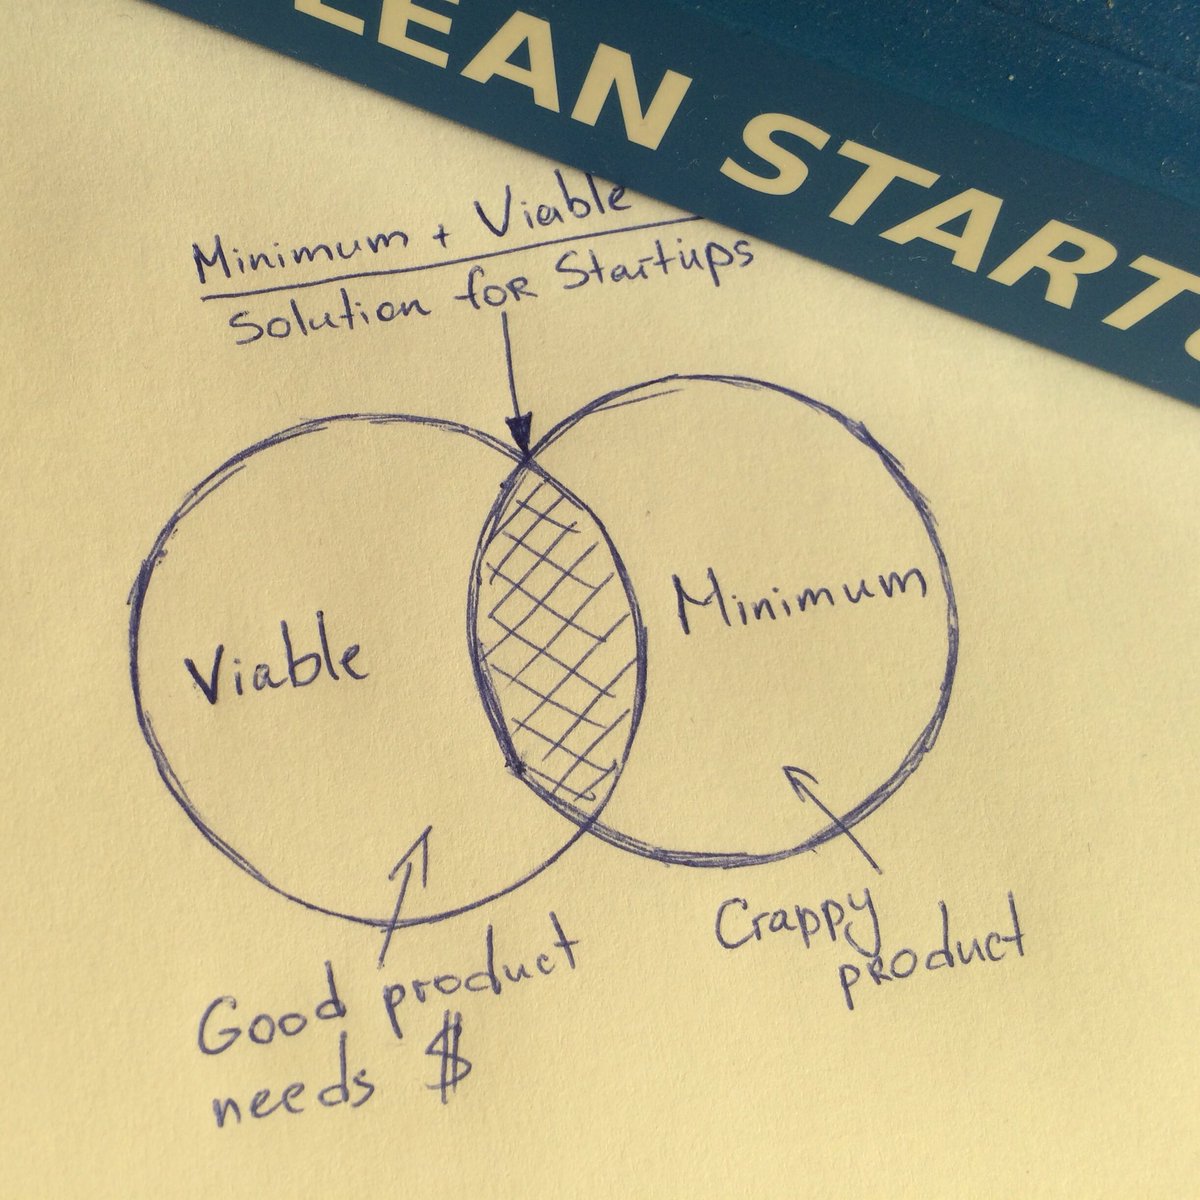 LEAN START
Minimum + Viable
Solution for Startups
Viable
Minimum
Good product
needs $
Crappy
product